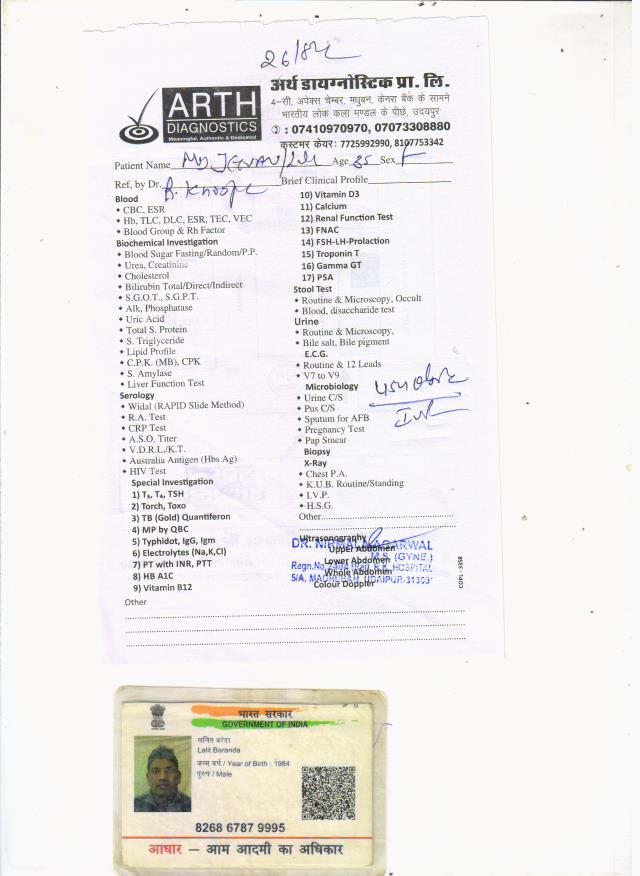 26/8
अर्थ डायग्नोस्टिक प्रा. लि.
4-सी, अपेक्स चेम्बर, मधुबन, केनरा बैंक के सामने
भारतीय लोक कला मण्डल के पीछे, उदयपुर
ARTH
DIAGNOSTICS
Meaningful, Authentic & Dedicated
: 07410970970, 07073308880
कस्टमर केयर: 7725992990, 8107753342
Patient Name Age 35 Sex F
Ref, by Dr. Brief Clinical Profile
Blood
• CBC, ESR
• Hb, TLC, DLC, ESR, TEC, VEC
• Blood Group & Rh Factor
Biochemical Investigation
• Blood Sugar Fasting/Random/P.P.
• Urea, Creatinine
• Cholesterol
• Bilirubin Total/Direct/Indirect
• S.G.O.T., S.G.P.T.
• Alk, Phosphatase
• Uric Acid
• Total S. Protein
• S. Triglyceride
• Lipid Profile
• C.P.K. (MB), CPK
• S. Amylase
• Liver Function Test
Serology
• Widal (RAPID Slide Method)
• R.A. Test
• CRP Test
• A.S.O. Titer
• V.D.R.L./K.T.
• Australia Antigen (Hbs Ag)
• HIV Test
Special Investigation
1) T3, T4, TSH
2) Torch, Toxo
3) TB (Gold) Quantiferon
4) MP by QBC
5) Typhidot, IgG, Igm
6) Electrolytes (Na,K,Cl)
7) PT with INR, PTT
8) HB A1C
9) Vitamin B12
Other
10) Vitamin D3
11) Calcium
12) Renal Function Test
13) FNAC
14) FSH-LH-Prolaction
15) Troponin T
16) Gamma GT
17) PSA
Stool Test
• Routine & Microscopy, Occult
• Blood, disaccharide test
Urine
• Routine & Microscopy,
• Bile salt, Bile pigment
E.C.G.
• Routine & 12 Leads
• V7 to V9
Microbiology
• Urine C/S
• Pus C/S
• Sputum for AFB
• Pregnancy Test
• Pap Smear
Biopsy
X-Ray
• Chest P.A.
• K.U.B. Routine/Standing
• I.V.P.
• H.S.G.
Other
Ultrasonography
DR. NIRMAL NAGARWAL
Upper Abdomen
M.S. (GYNE.)
Lower Abdomen
Regn.No. HOSPITAL
Whole Abdomen
5/A, MADHUBAN, UDAIPUR-31300
Colour Doppler
COPL - 3358
भारत सरकार
GOVERNMENT OF INDIA
ललित बरंडा
Lalit Baranda
जन्म वर्ष / Year of Birth : 1984
पुरुष / Male
8268 6787 9995
आधार — आम आदमी का अधिकार